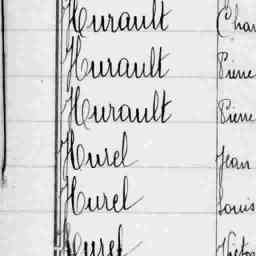 Hurault Char
Hurault Pierre
Hurault Pierre
Hurel Jean
Hurel Louis
Hurel Victor